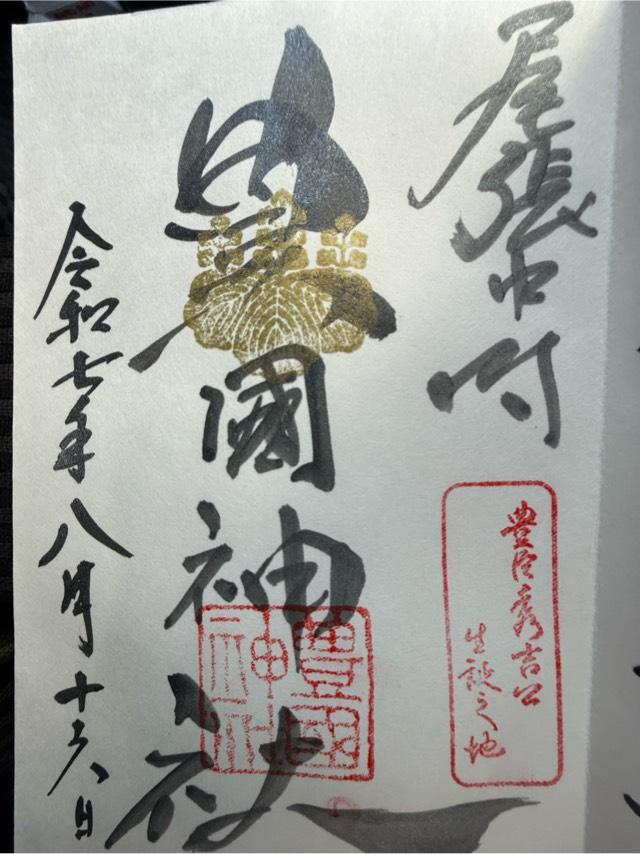 尾張中村
豊臣秀吉公
生誕之地
豊國神社
豊國
神社
令和七年八月十六日